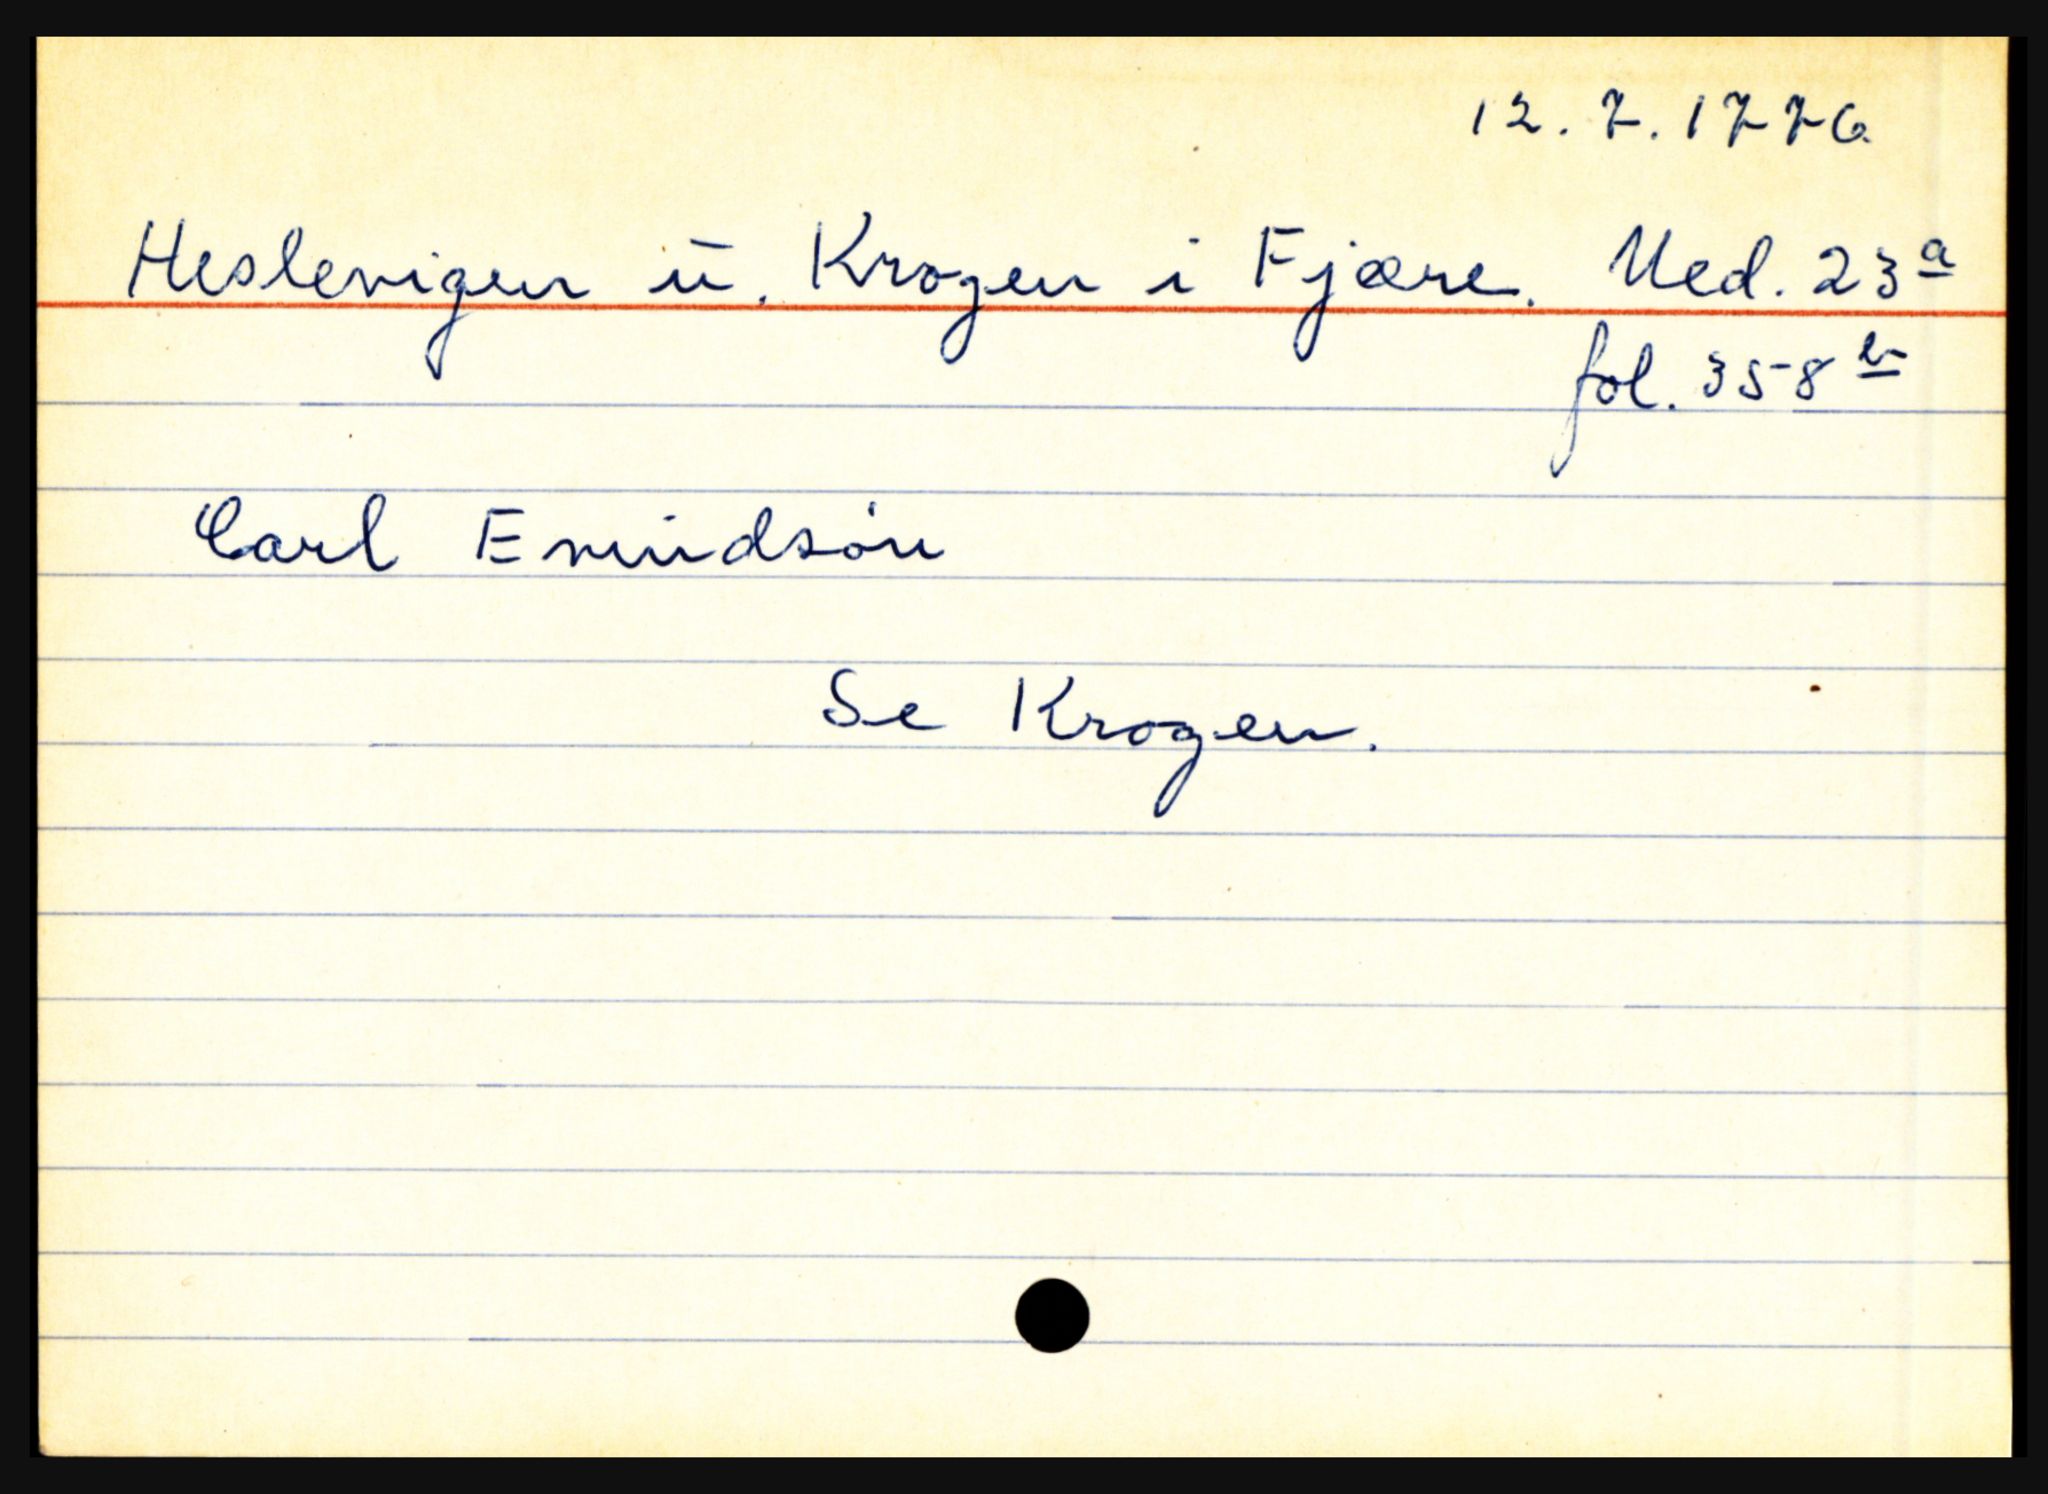 12.7.1776
Heslevigen ū. Krogen i Fjære. Ned. 23 a
fol. 358 b
Carl Evindsön
Se Krogen.